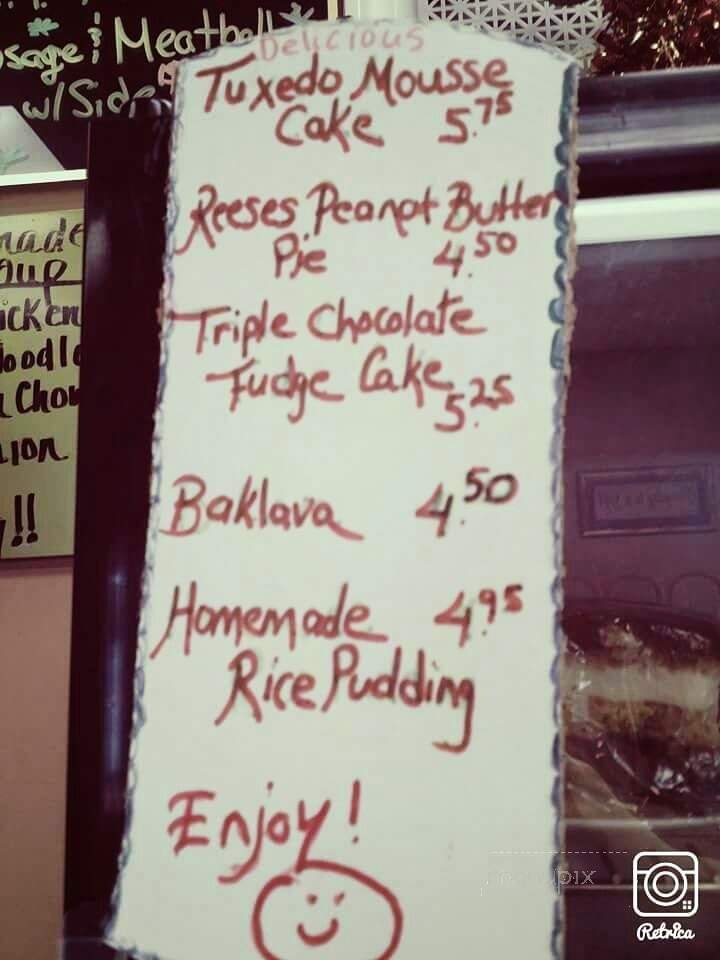 Meatball
w/Side
Delicious
Tuxedo Mousse
Cake 5.75
Reeses Peanut Butter
Pie 4.50
Triple Chocolate
Fudge Cake 5.25
Baklava 4.50
Homemade 4.95
Rice Pudding
Enjoy!
Retrica